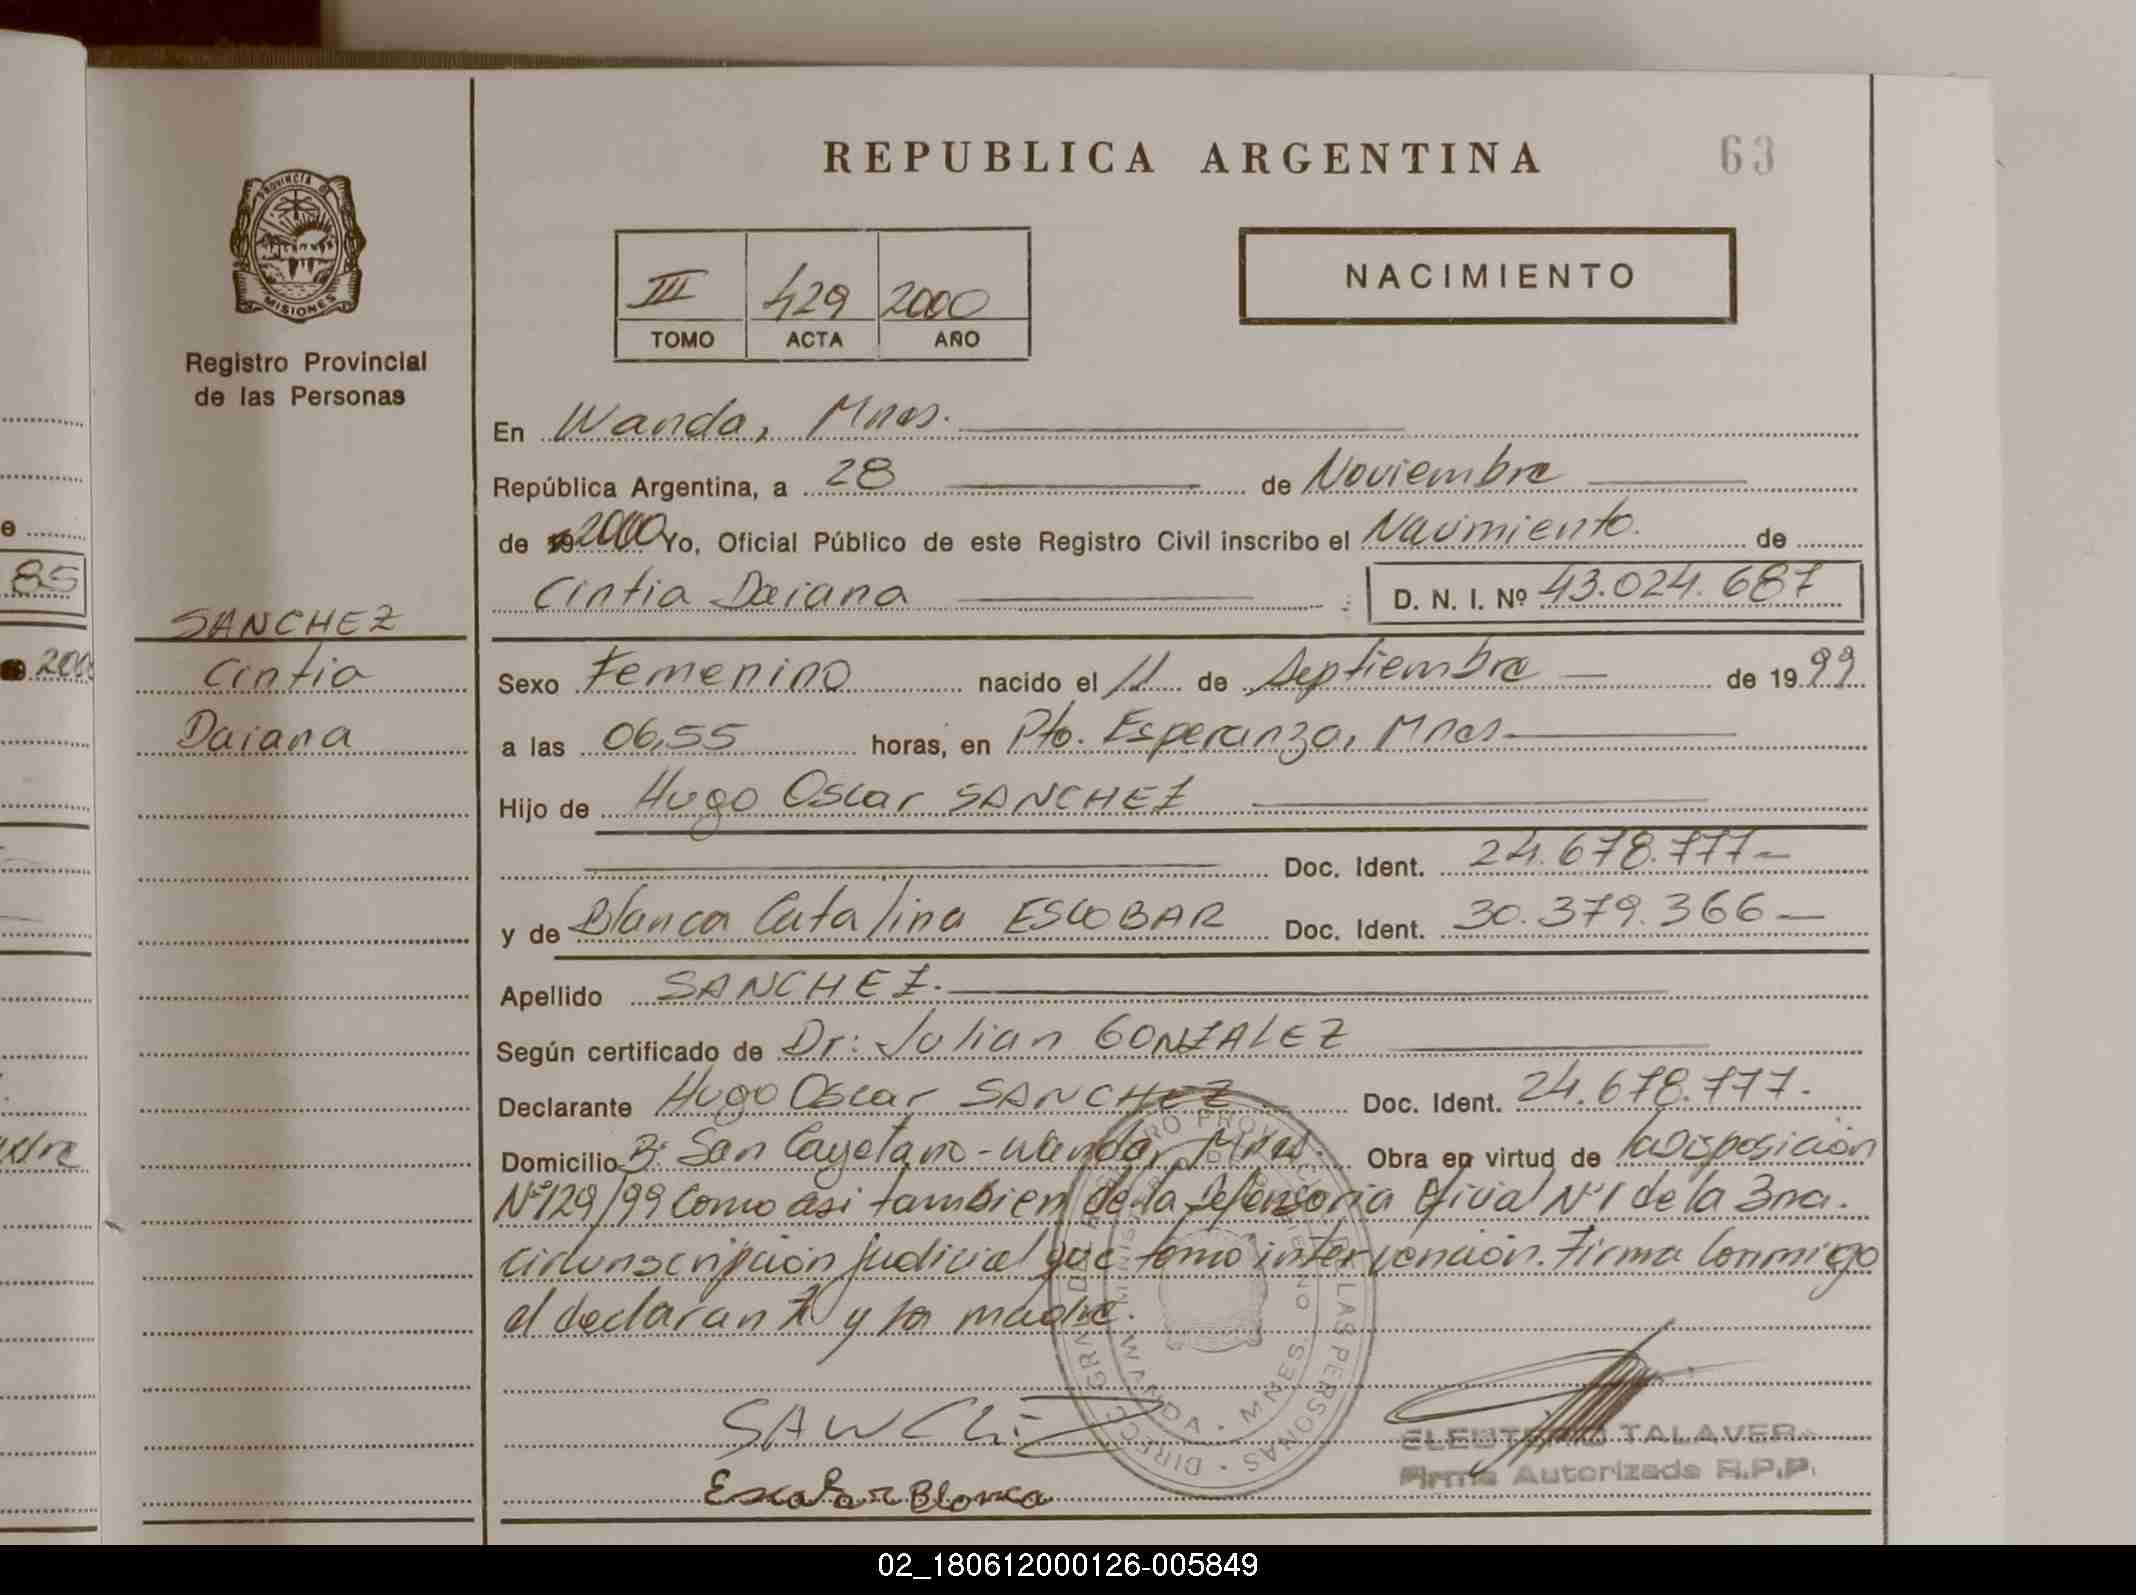 REPUBLICA ARGENTINA
63
PROVINCIA D
MISIONES
Registro Provincial
de las Personas
III 429 2000
TOMO ACTA AÑO
NACIMIENTO
En Wanda, Mnes.
República Argentina, a 28 de Noviembre
de 19 2000 Yo, Oficial Público de este Registro Civil inscribo el Nacimiento. de
Cintia Daiana D. N. I. Nº 43.024.687
SANCHEZ
Cintia
Daiana
Sexo Femenino nacido el 11 de Septiembre de 1999
a las 06,55 horas, en Pto. Esperanza, Mnes
Hijo de Hugo Oscar SANCHEZ
Doc. Ident. 24.678.777
y de Blanca Catalina ESCOBAR Doc. Ident. 30.379.366
Apellido SANCHEZ.
Según certificado de Dr: Julian GONZALEZ
Declarante Hugo Oscar SANCHEZ Doc. Ident. 24.678.777.
Domicilio Bº San Cayetano - Wanda, Mnes. Obra en virtud de la Disposición
Nº 129/99 Como asi tambien de la Defensoria Oficial Nº 1 de la 3ra.
circunscripción judicial que tomó intervención. Firma Conmigo
el declarante y la madre.
SANCHEZ
Escobar Blanca
ELEUTERIO TALAVER
Firma Autorizada R.P.P.
WANDA · MNES.
85
2000
adre
02_180612000126-005849